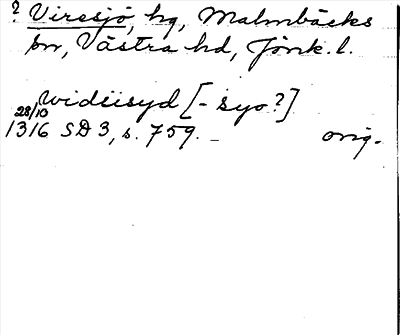 ? Viresjö, hg, Malmbäcks
sn, Västra hd, Jönk. l.
widiisyd [- syo?]
28/10
1316 SD 3, s. 759. orig.